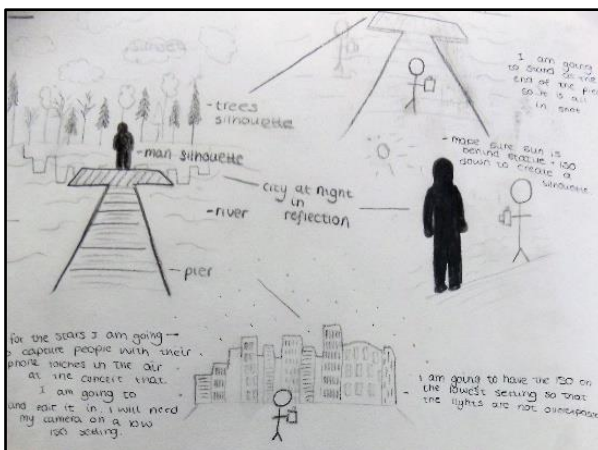 sunset
- trees
silhouette
- man silhouette
city at night
in
reflection
- river
- pier
I am going
to stand at the
end of the pier
so it is all
in shot
- make sure sun is
behind statue + ISO
down to create a
silhouette
for the stars I am going —
capture people with their
phone torches in the air
at the concert that
I am going to
and edit it in. I will need
my camera on a low
ISO setting.
I am going to have the ISO on
the lowest setting so that
the lights are not overexposed